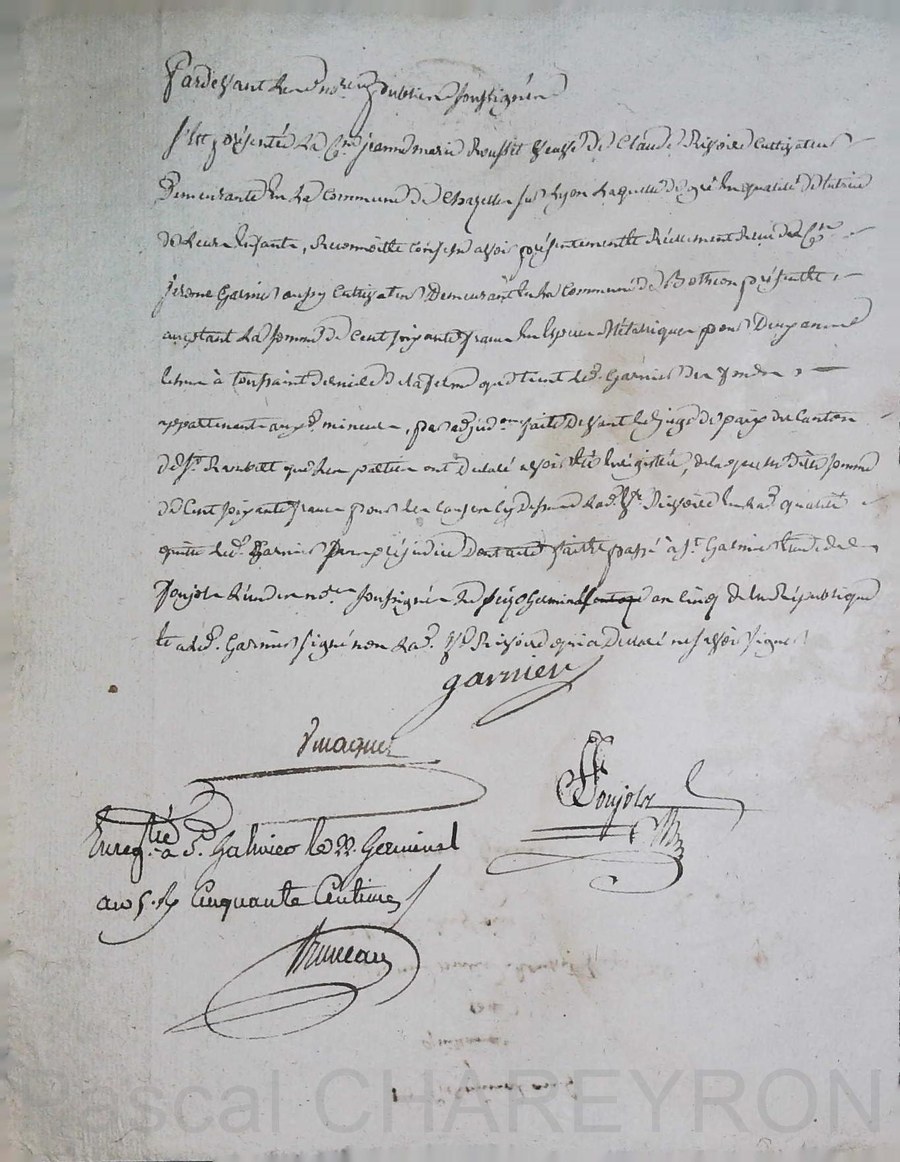 Pardevant les no.res publics soussignés
s'est présentée la C.ne jeanne marie Rousset veuve de Claude Rivoire Cultivateur
Demeurante en la commune de Chazelle sur Lyon laquelle de gré en qualité de tutrice
de leurs enfants, reconnoit et confesse avoir présentement et réellement reçu du C.en
jerome Garnier aussy Cultivateur Demeurant en la commune de Bothéon présent et
acceptant la somme de Cent soixante francs en espèces métalliques pour Deux années
échue à toussaint dernier de la ferme que tient led. Garnier des fonds
appartenant auxd. mineurs, par adjud.on faite devant le juge de paix du canton
de S.t Rambert que les parties ont déclaré avoir été enregistrée, de laquelle ditte somme
de Cent soixante francs pour les causes cy dessus lad. V.e Rivoire en lad. qualité
quitte led. Garnier sans préjudice dont acte fait et passé à S.t Galmier étude de
Foujols l'un des no.res soussignés le seize Germinal an cinq de la République
et a led. Garnier signé non lad. V.e Rivoire qui a déclaré ne savoir signer
garnier
Foujols
Enreg.tré à S.t Galmier le 22 Germinal
an 5. R Cinquante Centimes
Bruneau
Pascal CHAREYRON